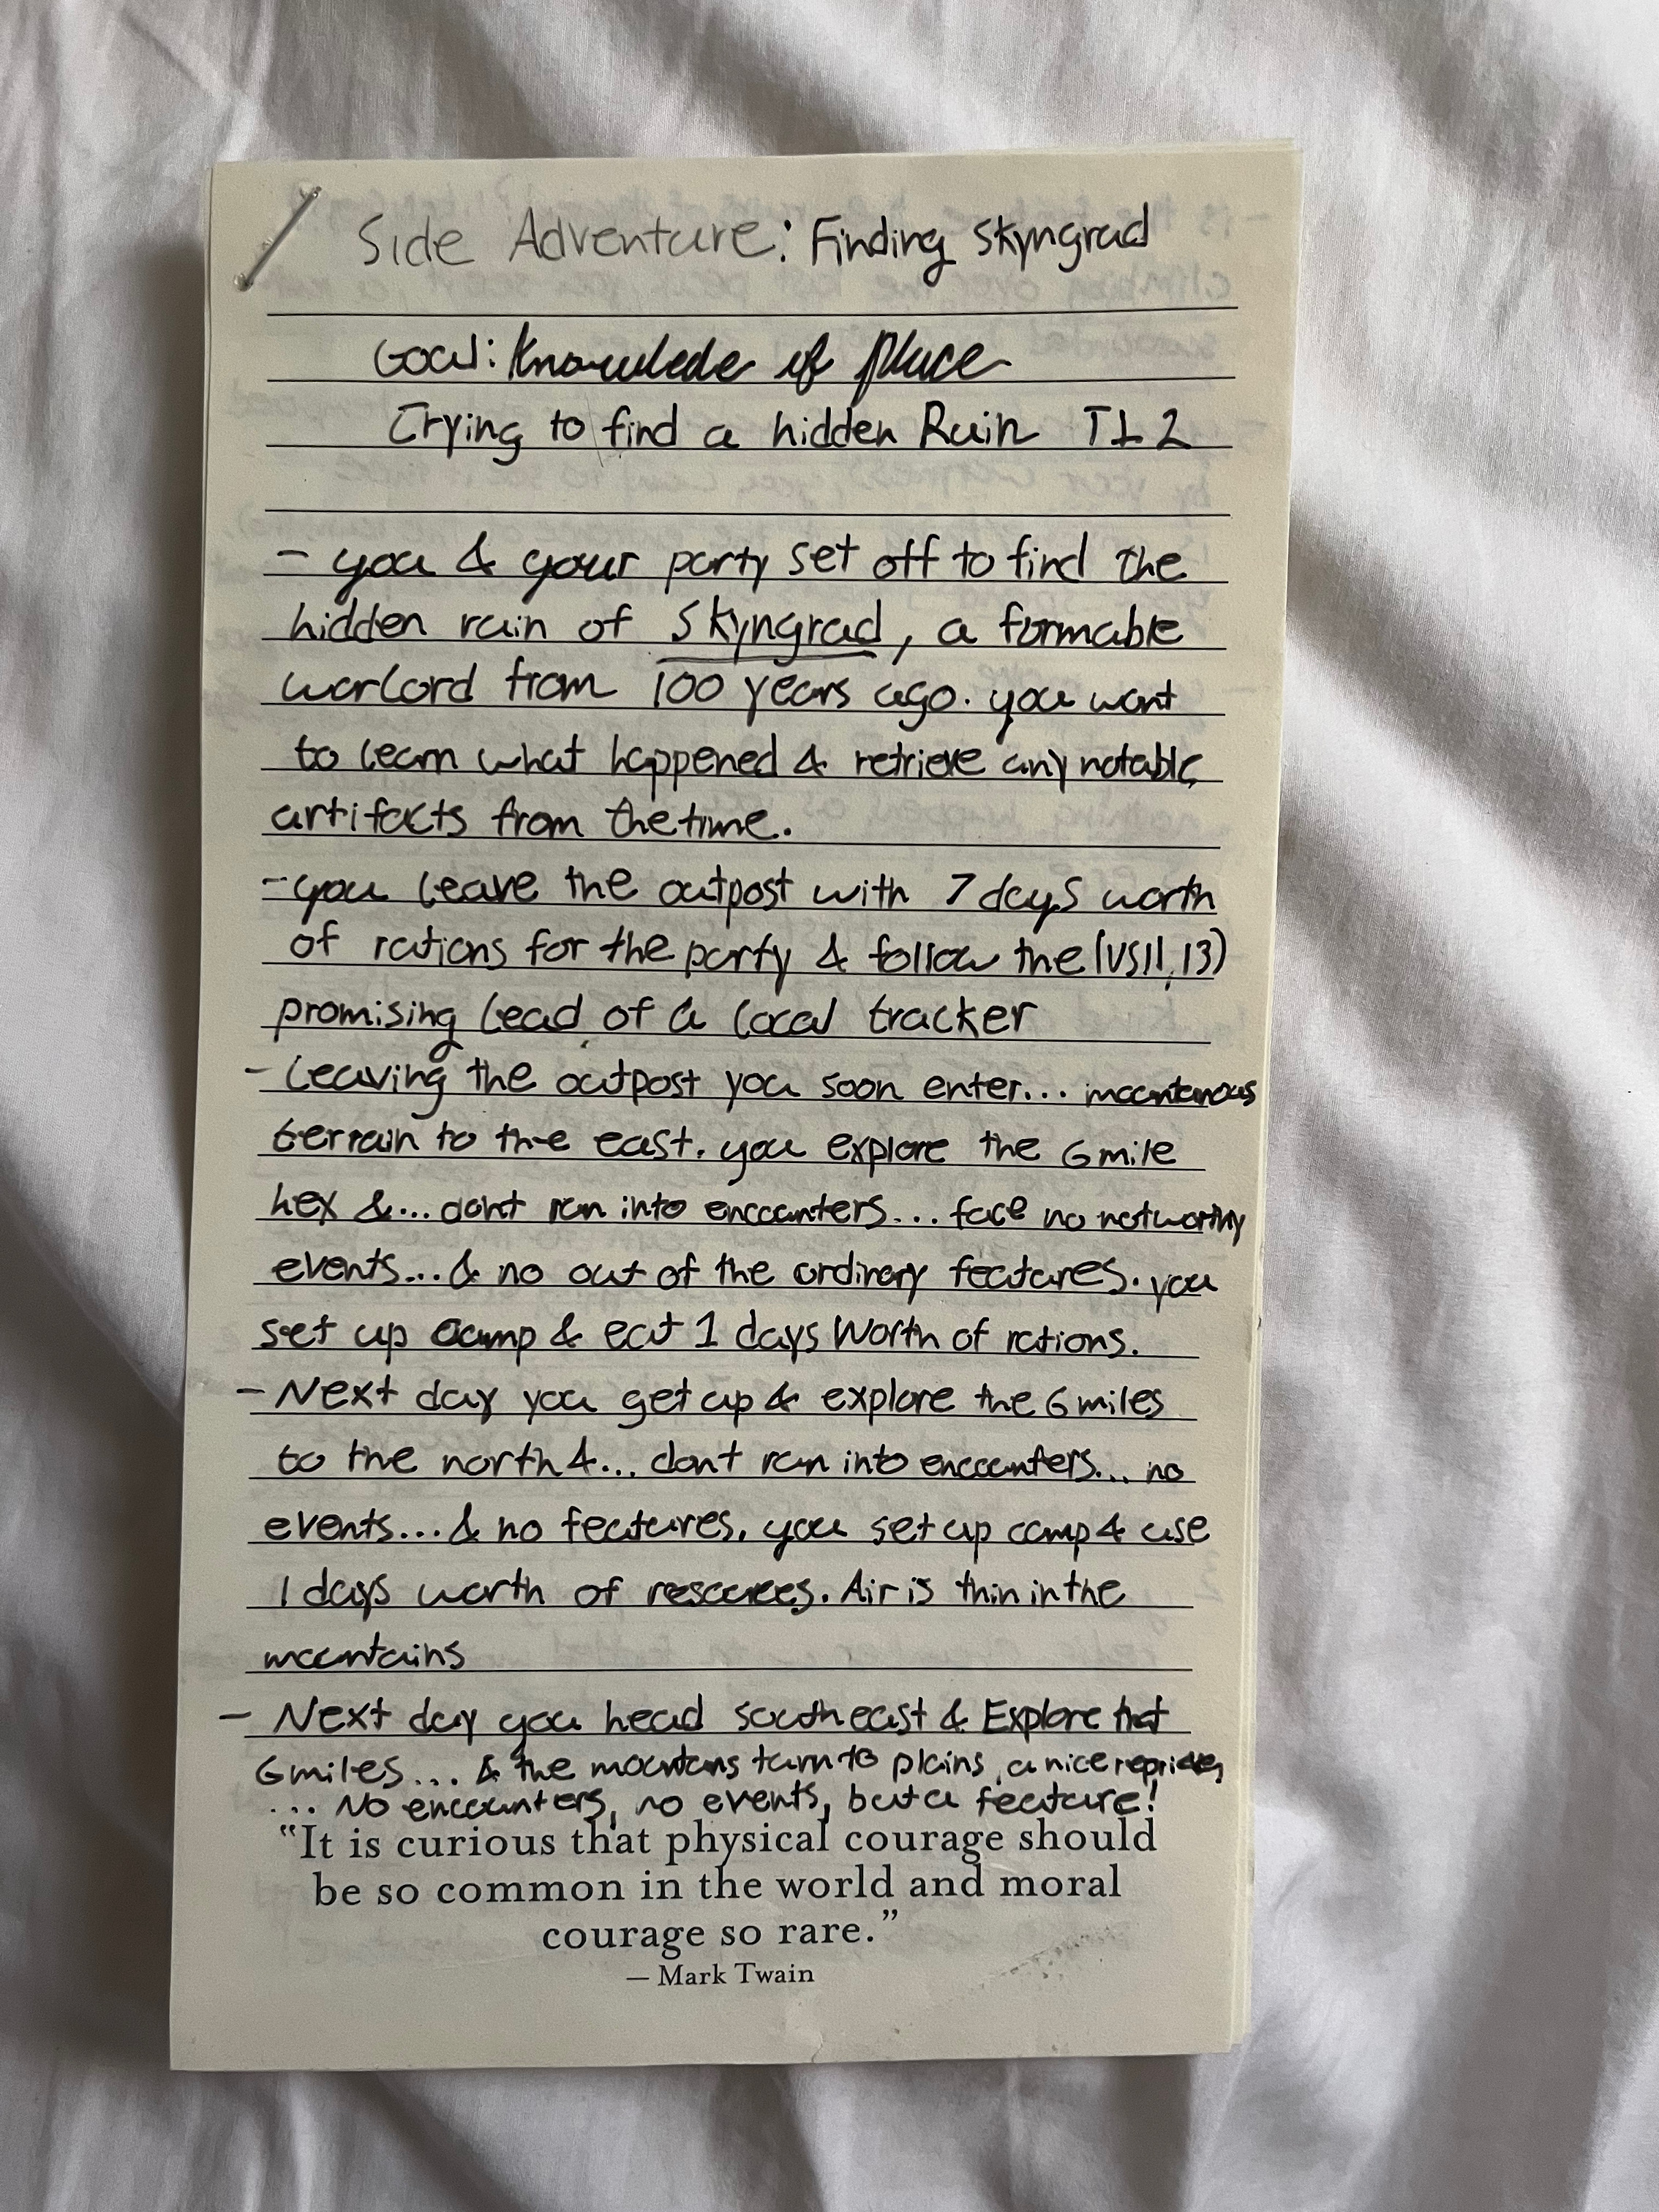 Side Adventure: Finding Skyngrad
Goal: Knowlede of Place
Trying to find a hidden Ruin TL 2
- you & your party set off to find the
hidden ruin of Skyngrad, a formable
warlord from 100 years ago. you want
to learn what happened & retrieve any notable
artifacts from the time.
- you leave the outpost with 7 days worth
of rations for the party & follow the (VS11,13)
promising lead of a local tracker
- Leaving the outpost you soon enter... mountanous
terrain to the east. you explore the 6 mile
hex &... dont run into encounters... face no notworthy
events... & no out of the ordinary features. you
set up camp & eat 1 days worth of rations.
- Next day you get up & explore the 6 miles
to the north &... dont run into encounters... no
events... & no features. you set up camp & use
1 days worth of resources. Air is thin in the
mountains
- Next day you head southeast & Explore that
6 miles... & the mountans turn to plains, a nice reprieve,
... No encounters, no events, but a feature!
"It is curious that physical courage should
be so common in the world and moral
courage so rare."
— Mark Twain